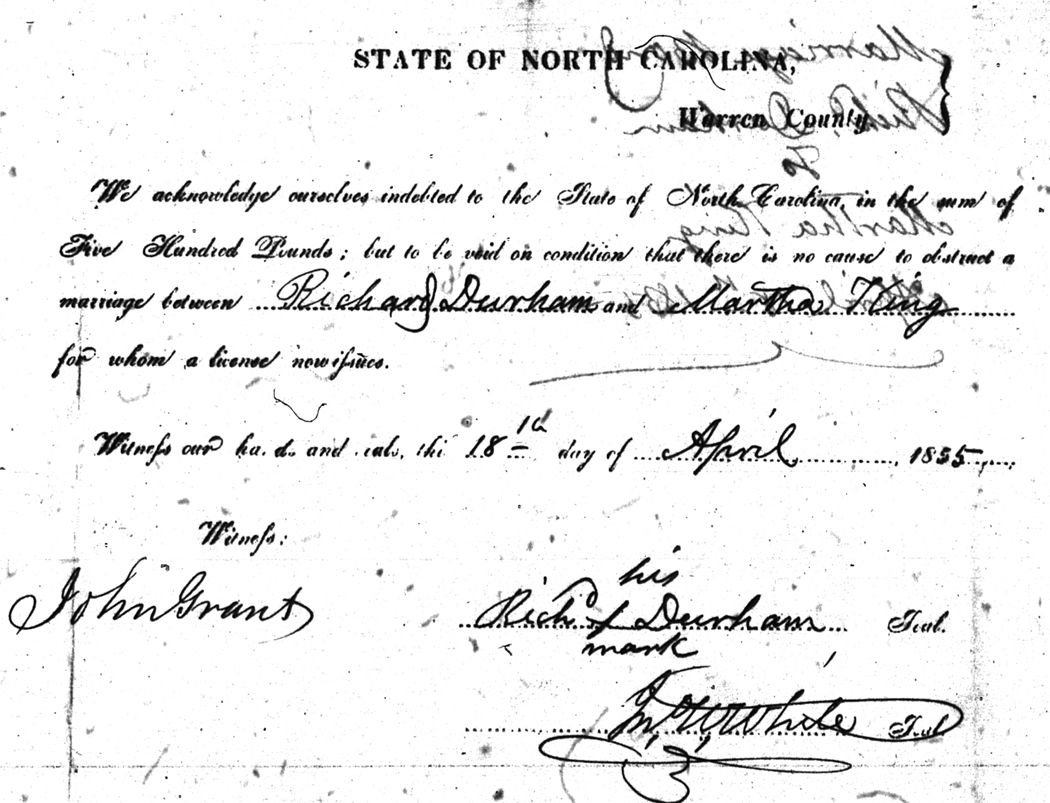 STATE OF NORTH CAROLINA,
Warren County
We acknowledge ourselves indebted to the State of North Carolina, in the sum of
Five Hundred Pounds; but to be void on condition that there is no cause to obstruct a
marriage between Richard Durham and Martha King
for whom a license now issues.
Witness our ha. ds and .eals, thi 18th day of April, 1855
Witness:
his
John Grant Richd Durham Seal.
mark
Jno W White Seal